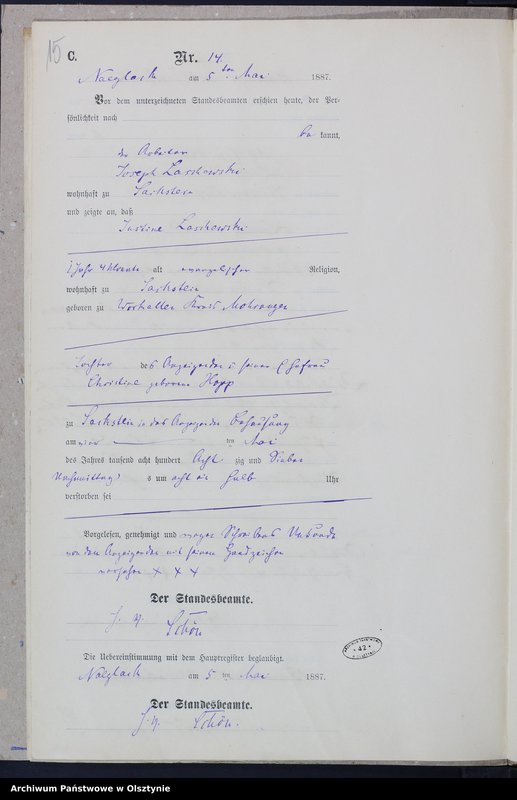 15
C.
Nr. 14.
Naeglack am 5 ten Mai 1887.
Vor dem unterzeichneten Standesbeamten erschien heute, der Per-
sönlichkeit nach
be kannt,
der Arbeiter
Joseph Laschewski
wohnhaft zu Sackstein
und zeigte an, daß
Justine Laschewski
1 Jahr 4 Monate alt evangelischer Religion,
wohnhaft zu Sackstein
geboren zu Worhallen Kreis Mohrungen
Tochter des Anzeigenden u. seiner Ehefrau
Christine geborene Hopp
zu Sackstein in des Anzeigenden Behausung
am vier ten Mai
des Jahres tausend acht hundert Acht zig und Sieben
Nachmittag s um acht ein halb Uhr
verstorben sei
Vorgelesen, genehmigt und wegen Schreibens Unkunde
von dem Anzeigenden mit seinem Handzeichen
versehen x x x
Der Standesbeamte.
Schön
Die Uebereinstimmung mit dem Hauptregister beglaubigt.
Naeglack am 5 ten Mai 1887.
Der Standesbeamte.
Schön.
42
Archiwum Państwowe w Olsztynie